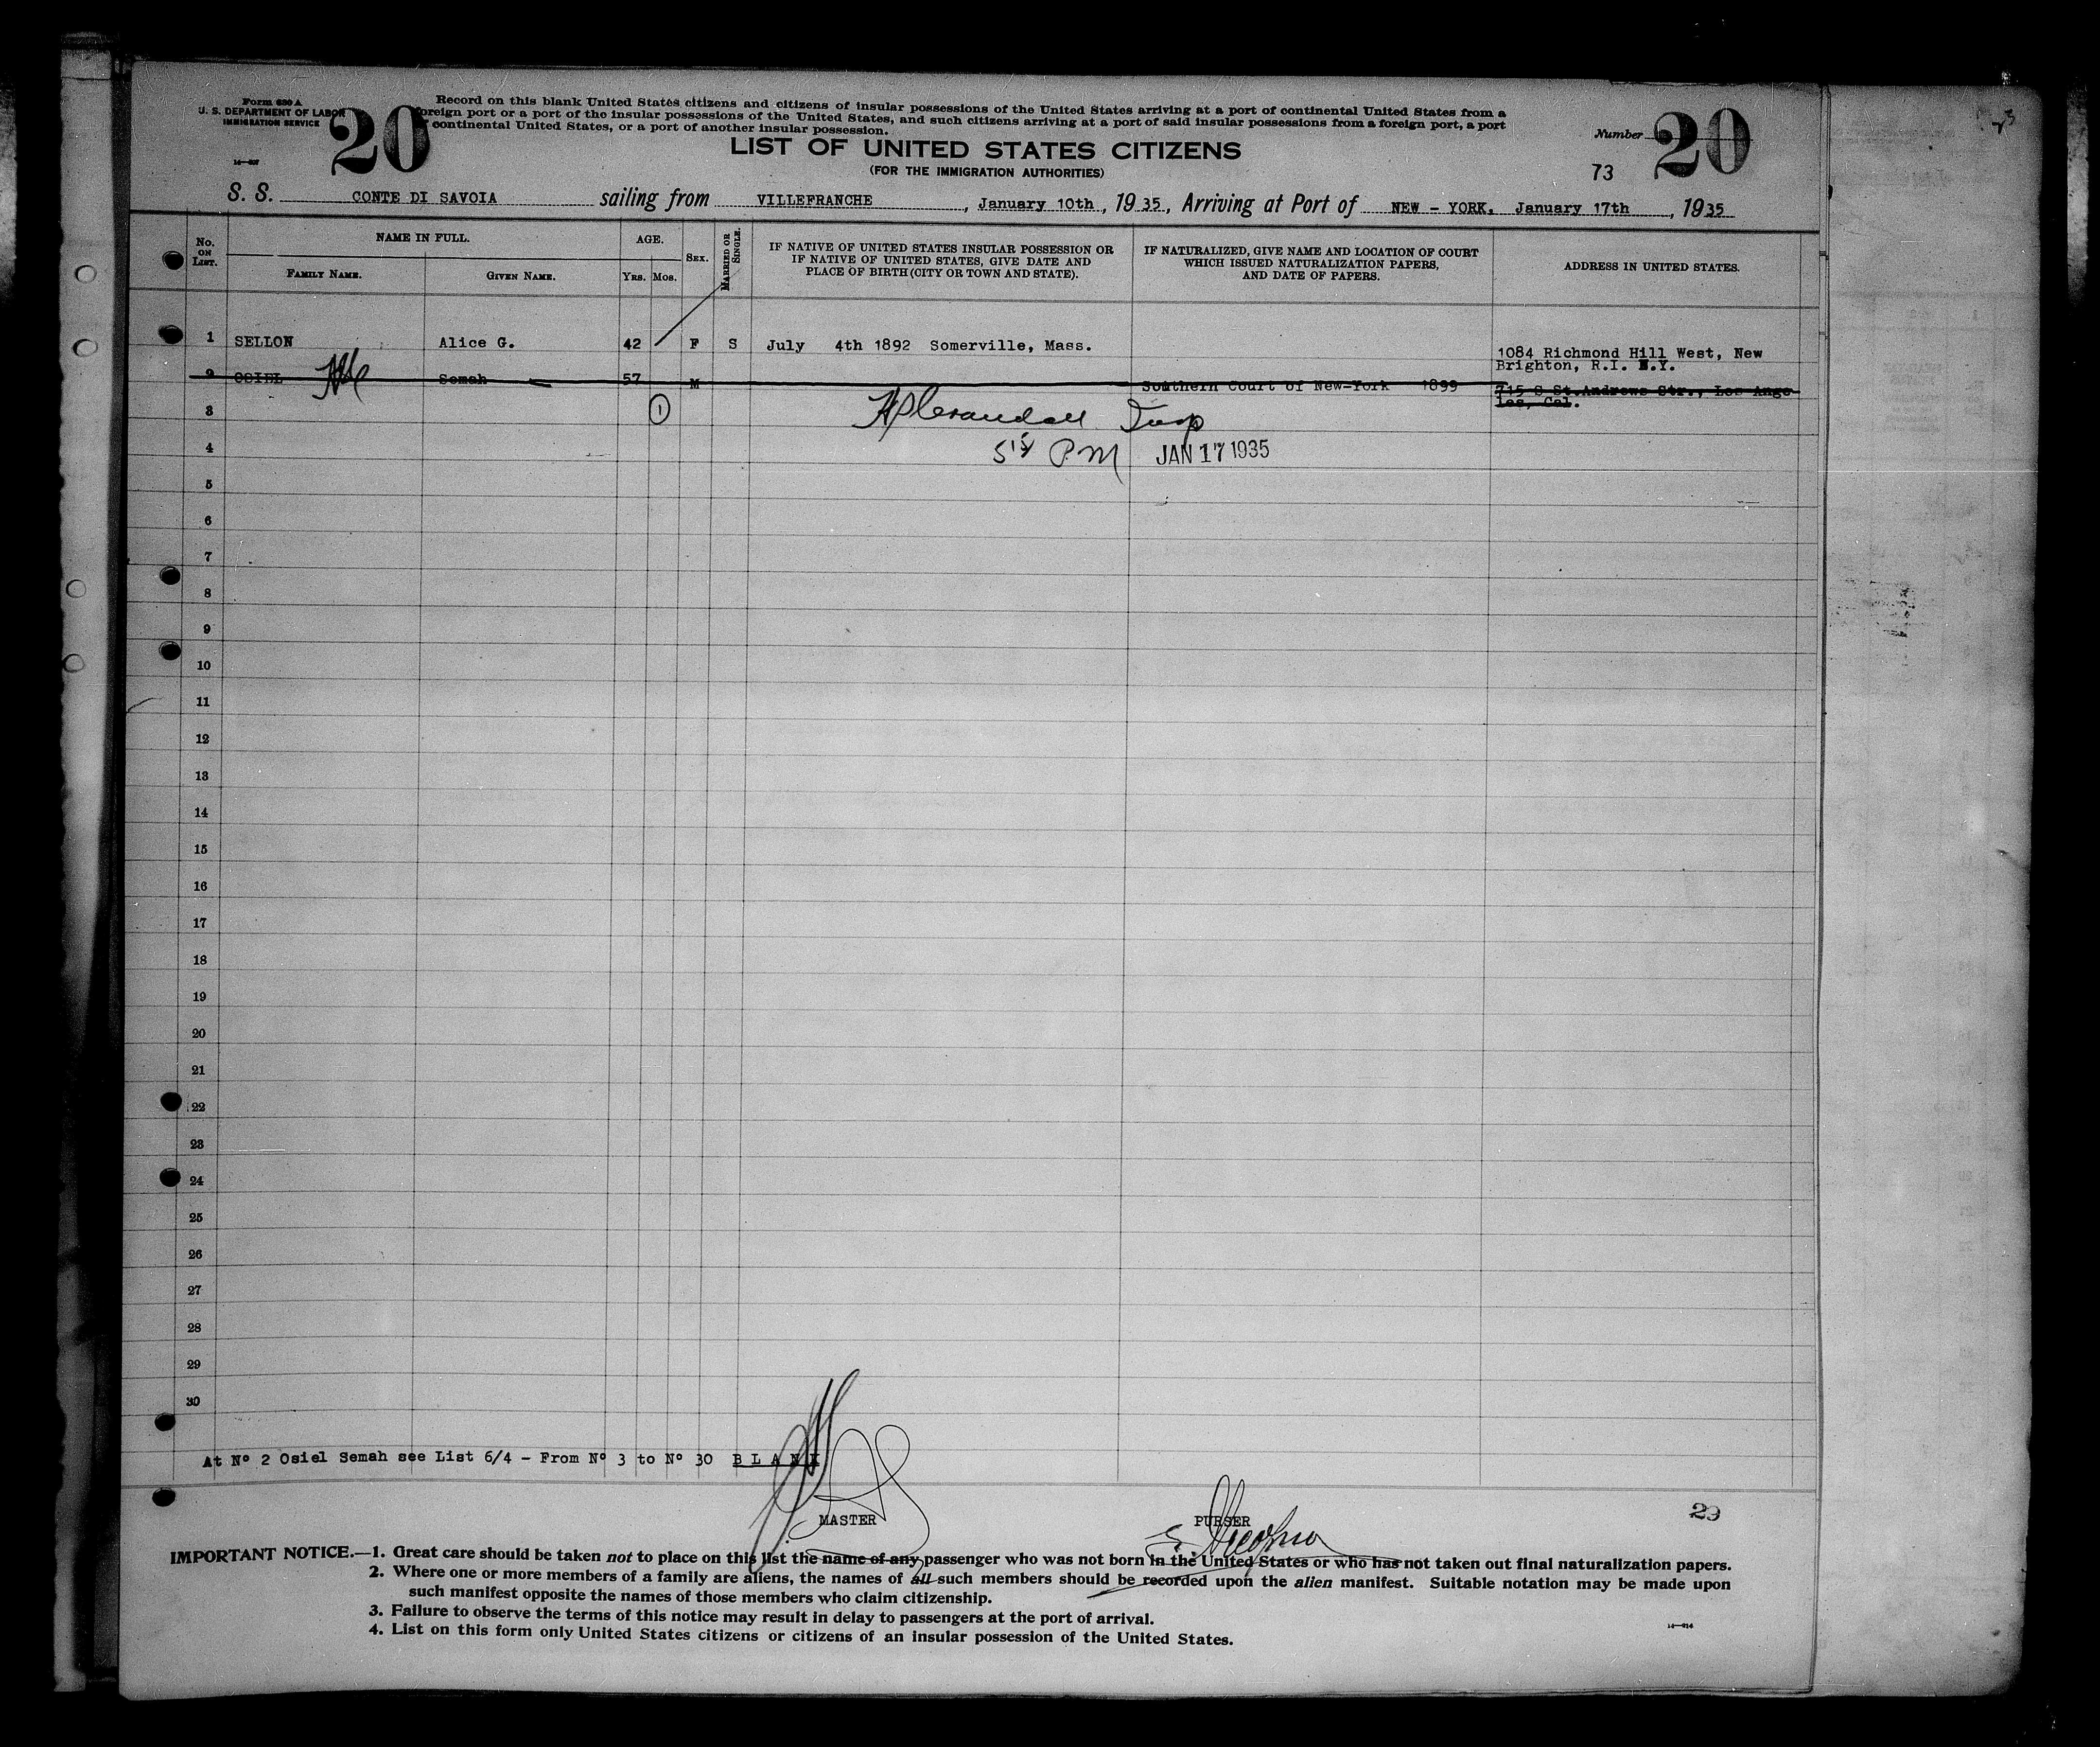 Form 630 A
U. S. DEPARTMENT OF LABOR
IMMIGRATION SERVICE
20
Record on this blank United States citizens and citizens of insular possessions of the United States arriving at a port of continental United States from a
foreign port or a port of the insular possessions of the United States, and such citizens arriving at a port of said insular possessions from a foreign port, a port
continental United States, or a port of another insular possession.
LIST OF UNITED STATES CITIZENS
(FOR THE IMMIGRATION AUTHORITIES)
Number 20
73
S. S. CONTE DI SAVOIA sailing from VILLEFRANCHE, January 10th, 1935, Arriving at Port of NEW - YORK. January 17th, 1935
No. ON LIST.
NAME IN FULL.
FAMILY NAME.
GIVEN NAME.
AGE.
YRS. MOS.
SEX.
MARRIED OR SINGLE.
IF NATIVE OF UNITED STATES INSULAR POSSESSION OR
IF NATIVE OF UNITED STATES, GIVE DATE AND
PLACE OF BIRTH (CITY OR TOWN AND STATE).
IF NATURALIZED, GIVE NAME AND LOCATION OF COURT
WHICH ISSUED NATURALIZATION PAPERS,
AND DATE OF PAPERS.
ADDRESS IN UNITED STATES.
1 SELLON Alice G. 42 F S July 4th 1892 Somerville, Mass. 1084 Richmond Hill West, New
Brighton, R.I. N.Y.
2 OSIEL Semah 57 M Southern Court of New-York 1899 715 S St.Andrews Str., Los Ange-
les, Cal.
3 1
4 PM JAN 17 1935
5
6
7
8
9
10
11
12
13
14
15
16
17
18
19
20
21
22
23
24
25
26
27
28
29
30
At Nº 2 Osiel Semah see List 6/4 - From Nº 3 to Nº 30 B L A N K
MASTER
PURSER
29
IMPORTANT NOTICE.—1. Great care should be taken not to place on this list the name of any passenger who was not born in the United States or who has not taken out final naturalization papers.
2. Where one or more members of a family are aliens, the names of all such members should be recorded upon the alien manifest. Suitable notation may be made upon
such manifest opposite the names of those members who claim citizenship.
3. Failure to observe the terms of this notice may result in delay to passengers at the port of arrival.
4. List on this form only United States citizens or citizens of an insular possession of the United States.